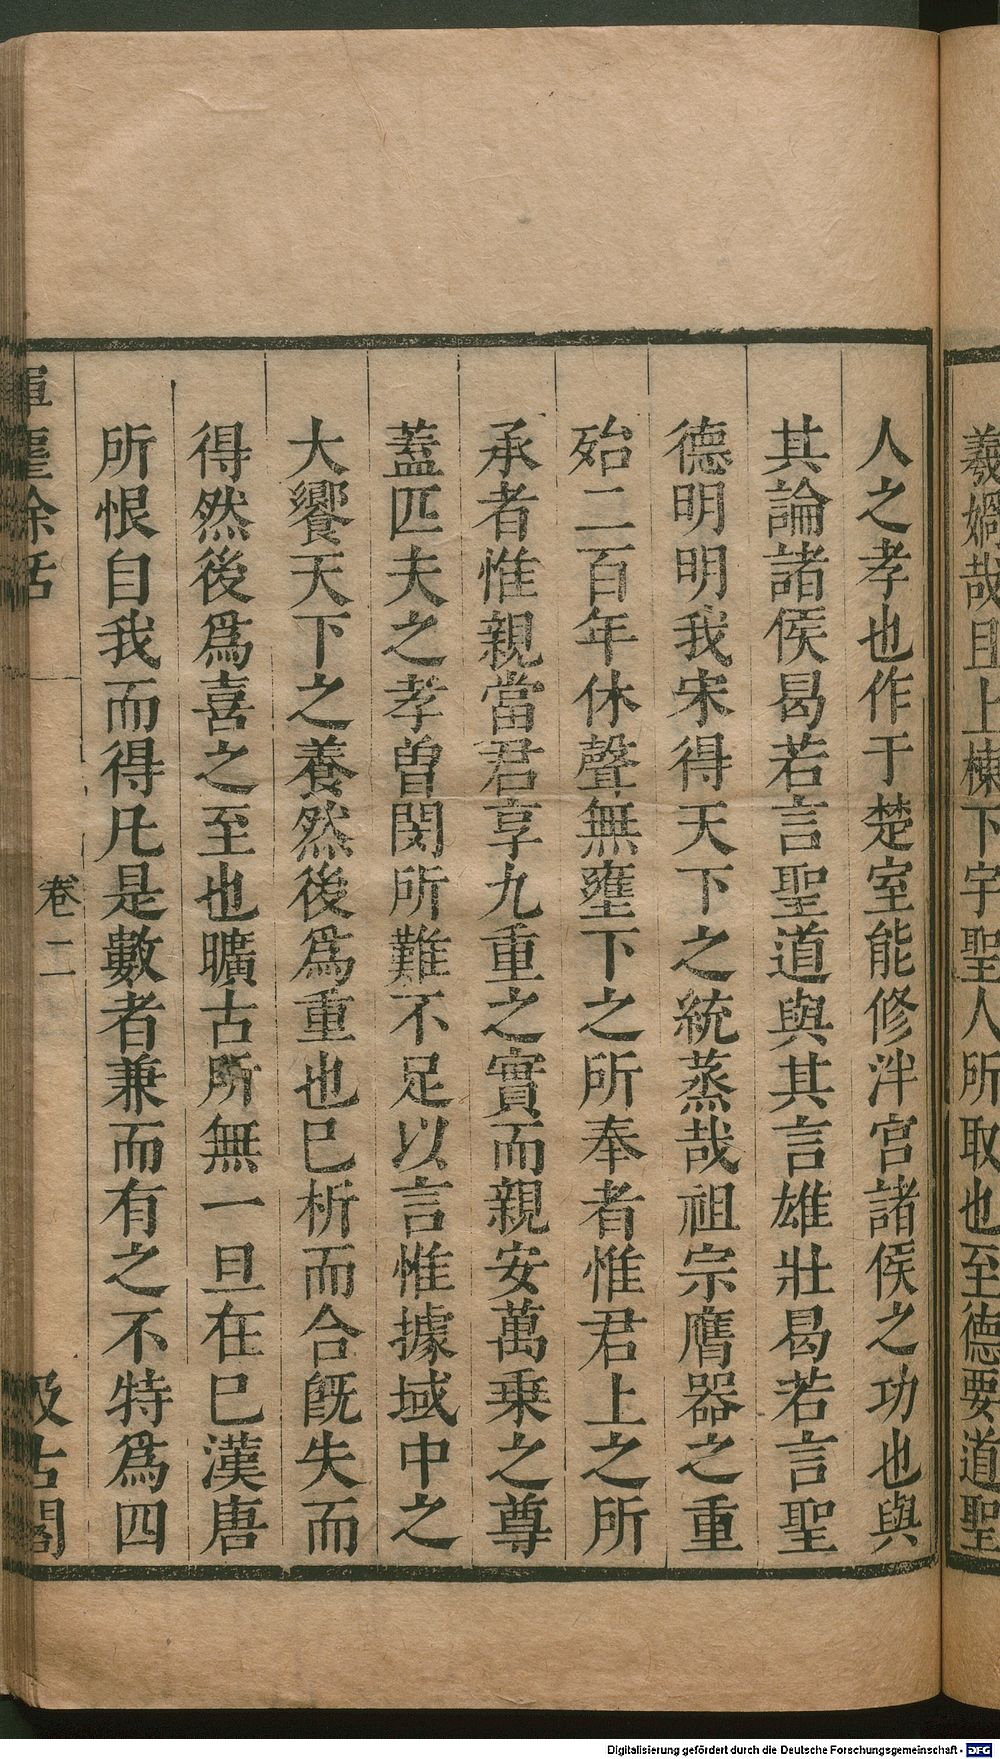 羲媧哉且上棟下宇聖人所取也至德要道聖
人之孝也作于楚室能修泮宮諸侯之功也與
其論諸侯曷若言聖道與其言雄壯曷若言聖
德明明我宋得天下之統蒸哉祖宗膺器之重
殆二百年休聲無壅下之所奉者惟君上之所
承者惟親當君享九重之實而親安萬乗之尊
蓋匹夫之孝曽閔所難不足以言惟據域中之
大饗天下之養然後爲重也巳析而合旣失而
得然後爲喜之至也曠古所無一旦在巳漢唐
所恨自我而得凡是數者兼而有之不特爲四
揮麈餘話
卷二
汲古閣
Digitalisierung gefördert durch die Deutsche Forschungsgemeinschaft - DFG